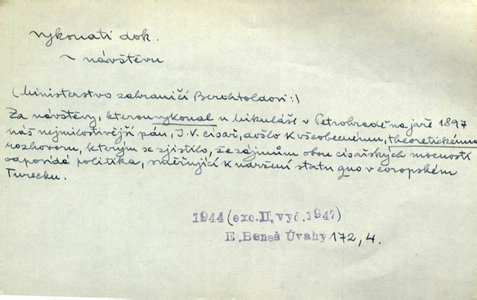 vykonati dok.
~ návštěvu
(Ministerstvo zahraničí Berchtoldovi:)
Za návštěvy, kterou vykonal u Mikuláše v Petrohradě na jaře 1897
náš nejmilostivější pán, J. V. císař, došlo k všeobecnému, theoretickému
rozhovoru, kterým se zjistilo, že zájmům obou císařských mocností
odpovídá politika, směřující k udržení statu quo v evropském
Turecku.
1944 (exc. II, vyč. 1947)
E. Beneš Úvahy 172, 4.